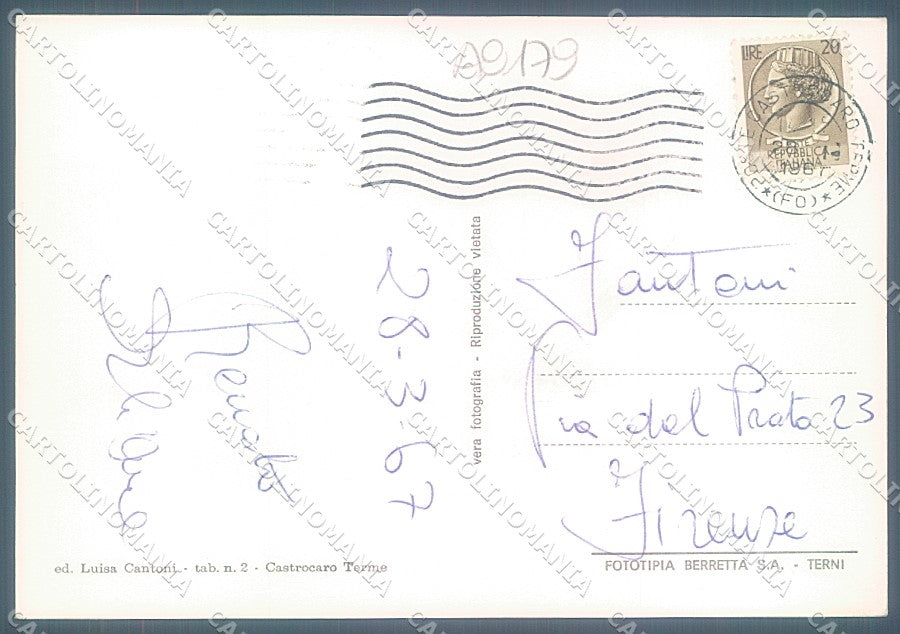 A9179
LIRE 20
POSTE
REPUBBLICA
ITALIANA
1967
*(FO)*
TERME
28-3-67
Renato
vera fotografia - Riproduzione vietata
Fantoni
Via del Prato 23
Firenze
ed. Luisa Cantoni - tab. n. 2 - Castrocaro Terme
FOTOTIPIA BERRETTA S.A. - TERNI
CARTOLINOMANIA